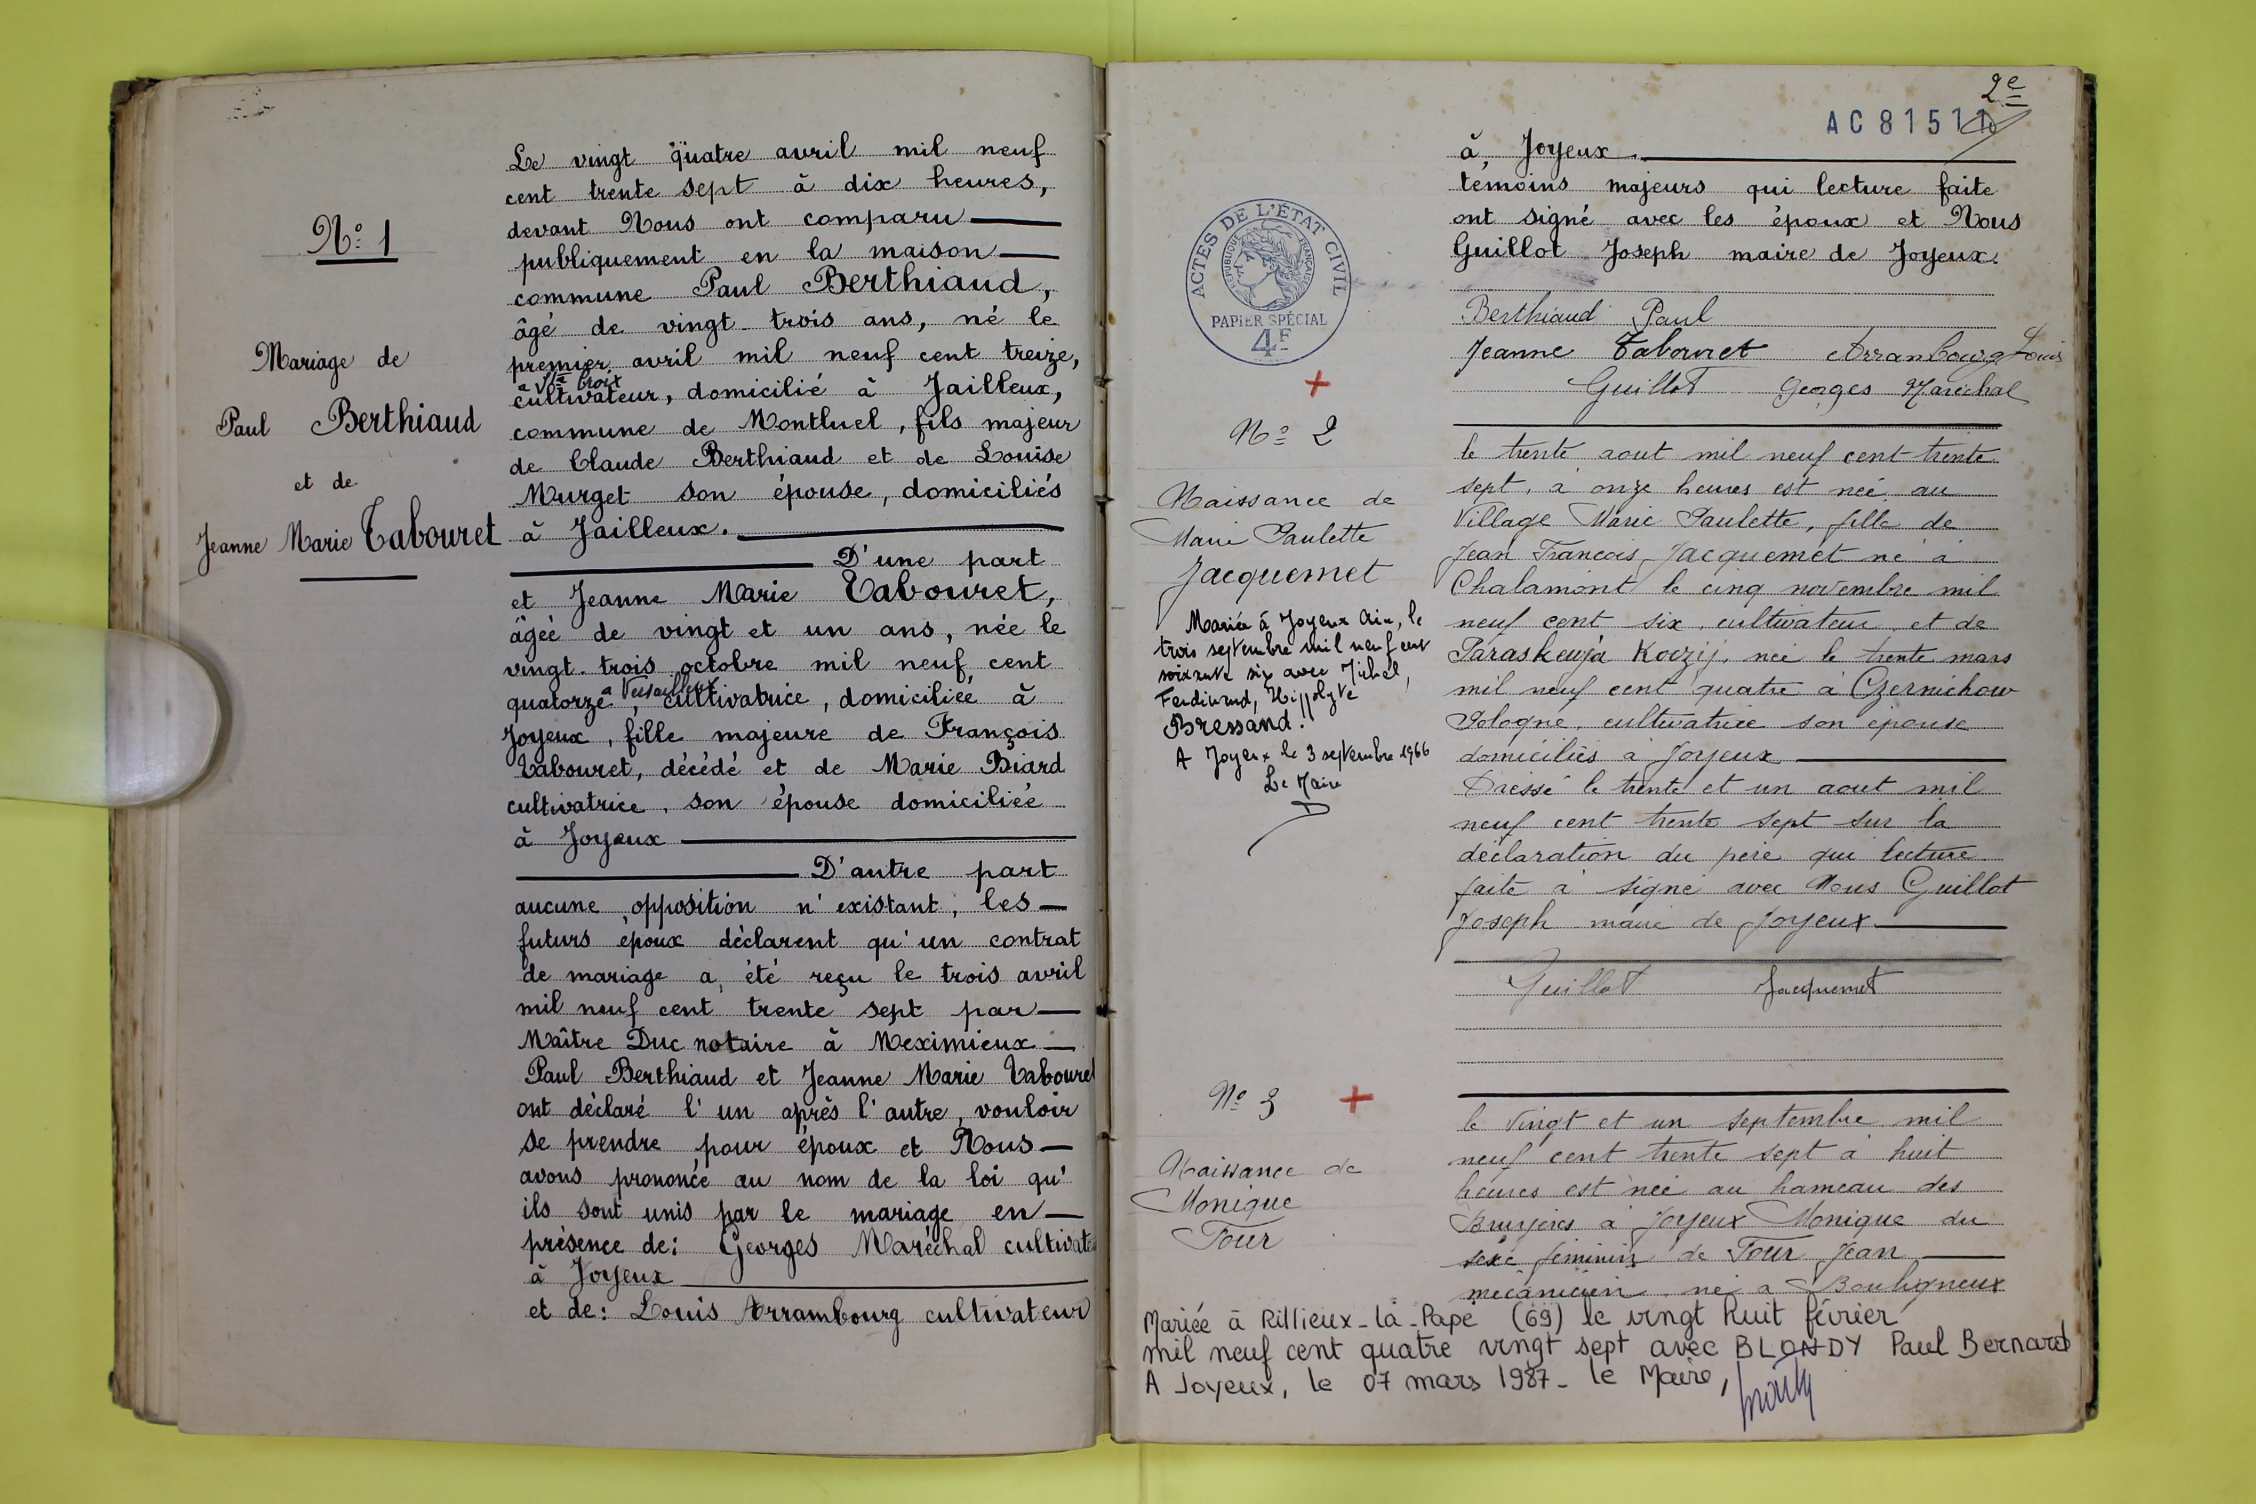 N° 1
Mariage de
Paul Berthiaud
et de
Jeanne Marie Tabouret
Le vingt quatre avril mil neuf
cent trente sept à dix heures,
devant Nous ont comparu
publiquement en la maison
commune Paul Berthiaud,
âgé de vingt-trois ans, né le
premier avril mil neuf cent treize,
à Ste Croix
cultivateur, domicilié à Jailleux,
commune de Montluel, fils majeur
de Claude Berthiaud et de Louise
Murget son épouse, domiciliés
à Jailleux.
D'une part
et Jeanne Marie Tabouret,
âgée de vingt et un ans, née le
vingt-trois octobre mil neuf cent
à Versailleux
quatorze, cultivatrice, domiciliée à
Joyeux, fille majeure de François
Tabouret, décédé et de Marie Biard
cultivatrice, son épouse domiciliée
à Joyeux
D'autre part
aucune opposition n'existant, les
futurs époux déclarent qu'un contrat
de mariage a été reçu le trois avril
mil neuf cent trente sept par
Maître Duc notaire à Meximieux
Paul Berthiaud et Jeanne Marie Tabouret
ont déclaré l'un après l'autre, vouloir
se prendre pour époux et Nous
avons prononcée au nom de la loi qu'
ils sont unis par le mariage en
présence de: Georges Maréchal cultivate
à Joyeux
et de: Louis Arrambourg cultivateur
2e
AC 81511
à Joyeux.
témoins majeurs qui lecture faite
ont signé avec les époux et Nous
Guillot Joseph maire de Joyeux.
Berthiaud Paul
Jeanne Tabouret Arrambourg Louis
Guillot Georges Maréchal
ACTES DE L'ÉTAT CIVIL
RÉPUBLIQUE FRANÇAISE
PAPIER SPÉCIAL
4F
N° 2
Naissance de
Marie Paulette
Jacquemet
Mariée à Joyeux Ain, le
trois septembre mil neuf cent
soixante six avec Michel,
Ferdinand, Hippolyte
Bressand.
A Joyeux le 3 septembre 1966
Le Maire
le trente aout mil neuf cent trente
sept, à onze heures est née au
Village Marie Paulette, fille de
Jean Francois Jacquemet né à
Chalamont le cinq novembre mil
neuf cent six, cultivateur et de
Paraskewja Korzij, née le trente mars
mil neuf cent quatre à Czernichow
Pologne, cultivatrice son épouse
domiciliés à Joyeux
Dressé le trente et un aout mil
neuf cent trente sept sur la
déclaration du père qui lecture
faite a signé avec Nous Guillot
Joseph maire de Joyeux
Guillot Jacquemet
N° 3
Naissance de
Monique
Tour
le vingt et un septembre mil
neuf cent trente sept à huit
heures est née au hameau des
Bruyères à Joyeux Monique du
sexe féminin de Tour Jean
mécanicien, né à Bouligneux
Mariée à Rillieux-la-Pape (69) le vingt huit février
mil neuf cent quatre vingt sept avec BLONDY Paul Bernard
A Joyeux, le 07 mars 1987- le Maire,